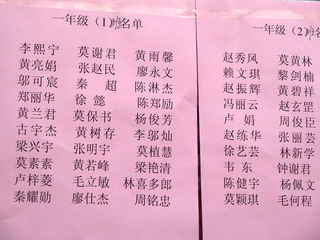 一年级（1）班名单
李熙宁 莫谢君 黄雨馨
黄亮娟 张赵民 廖永文
邬可宸 秦超 陈淋杰
郑丽华 徐懿 陈郑励
黄兰君 莫保书 杨俊芳
古宇杰 黄树存 李邬灿
梁兴宇 张明宇 莫植慧
莫素素 黄若峰 梁艳清
卢梓菱 毛立敏 林喜多郎
秦耀勋 廖仕杰 周铭忠
一年级（2）班名
赵秀凤 莫黄林
赖文琪 黎剑楠
赵振辉 黄碧祥
冯丽云 赵玄罡
卢娟 周俊臣
赵练华 张丽芸
徐艺芸 林新学
韦东 钟谢君
陈健宇 杨佩文
莫颖琪 毛何程